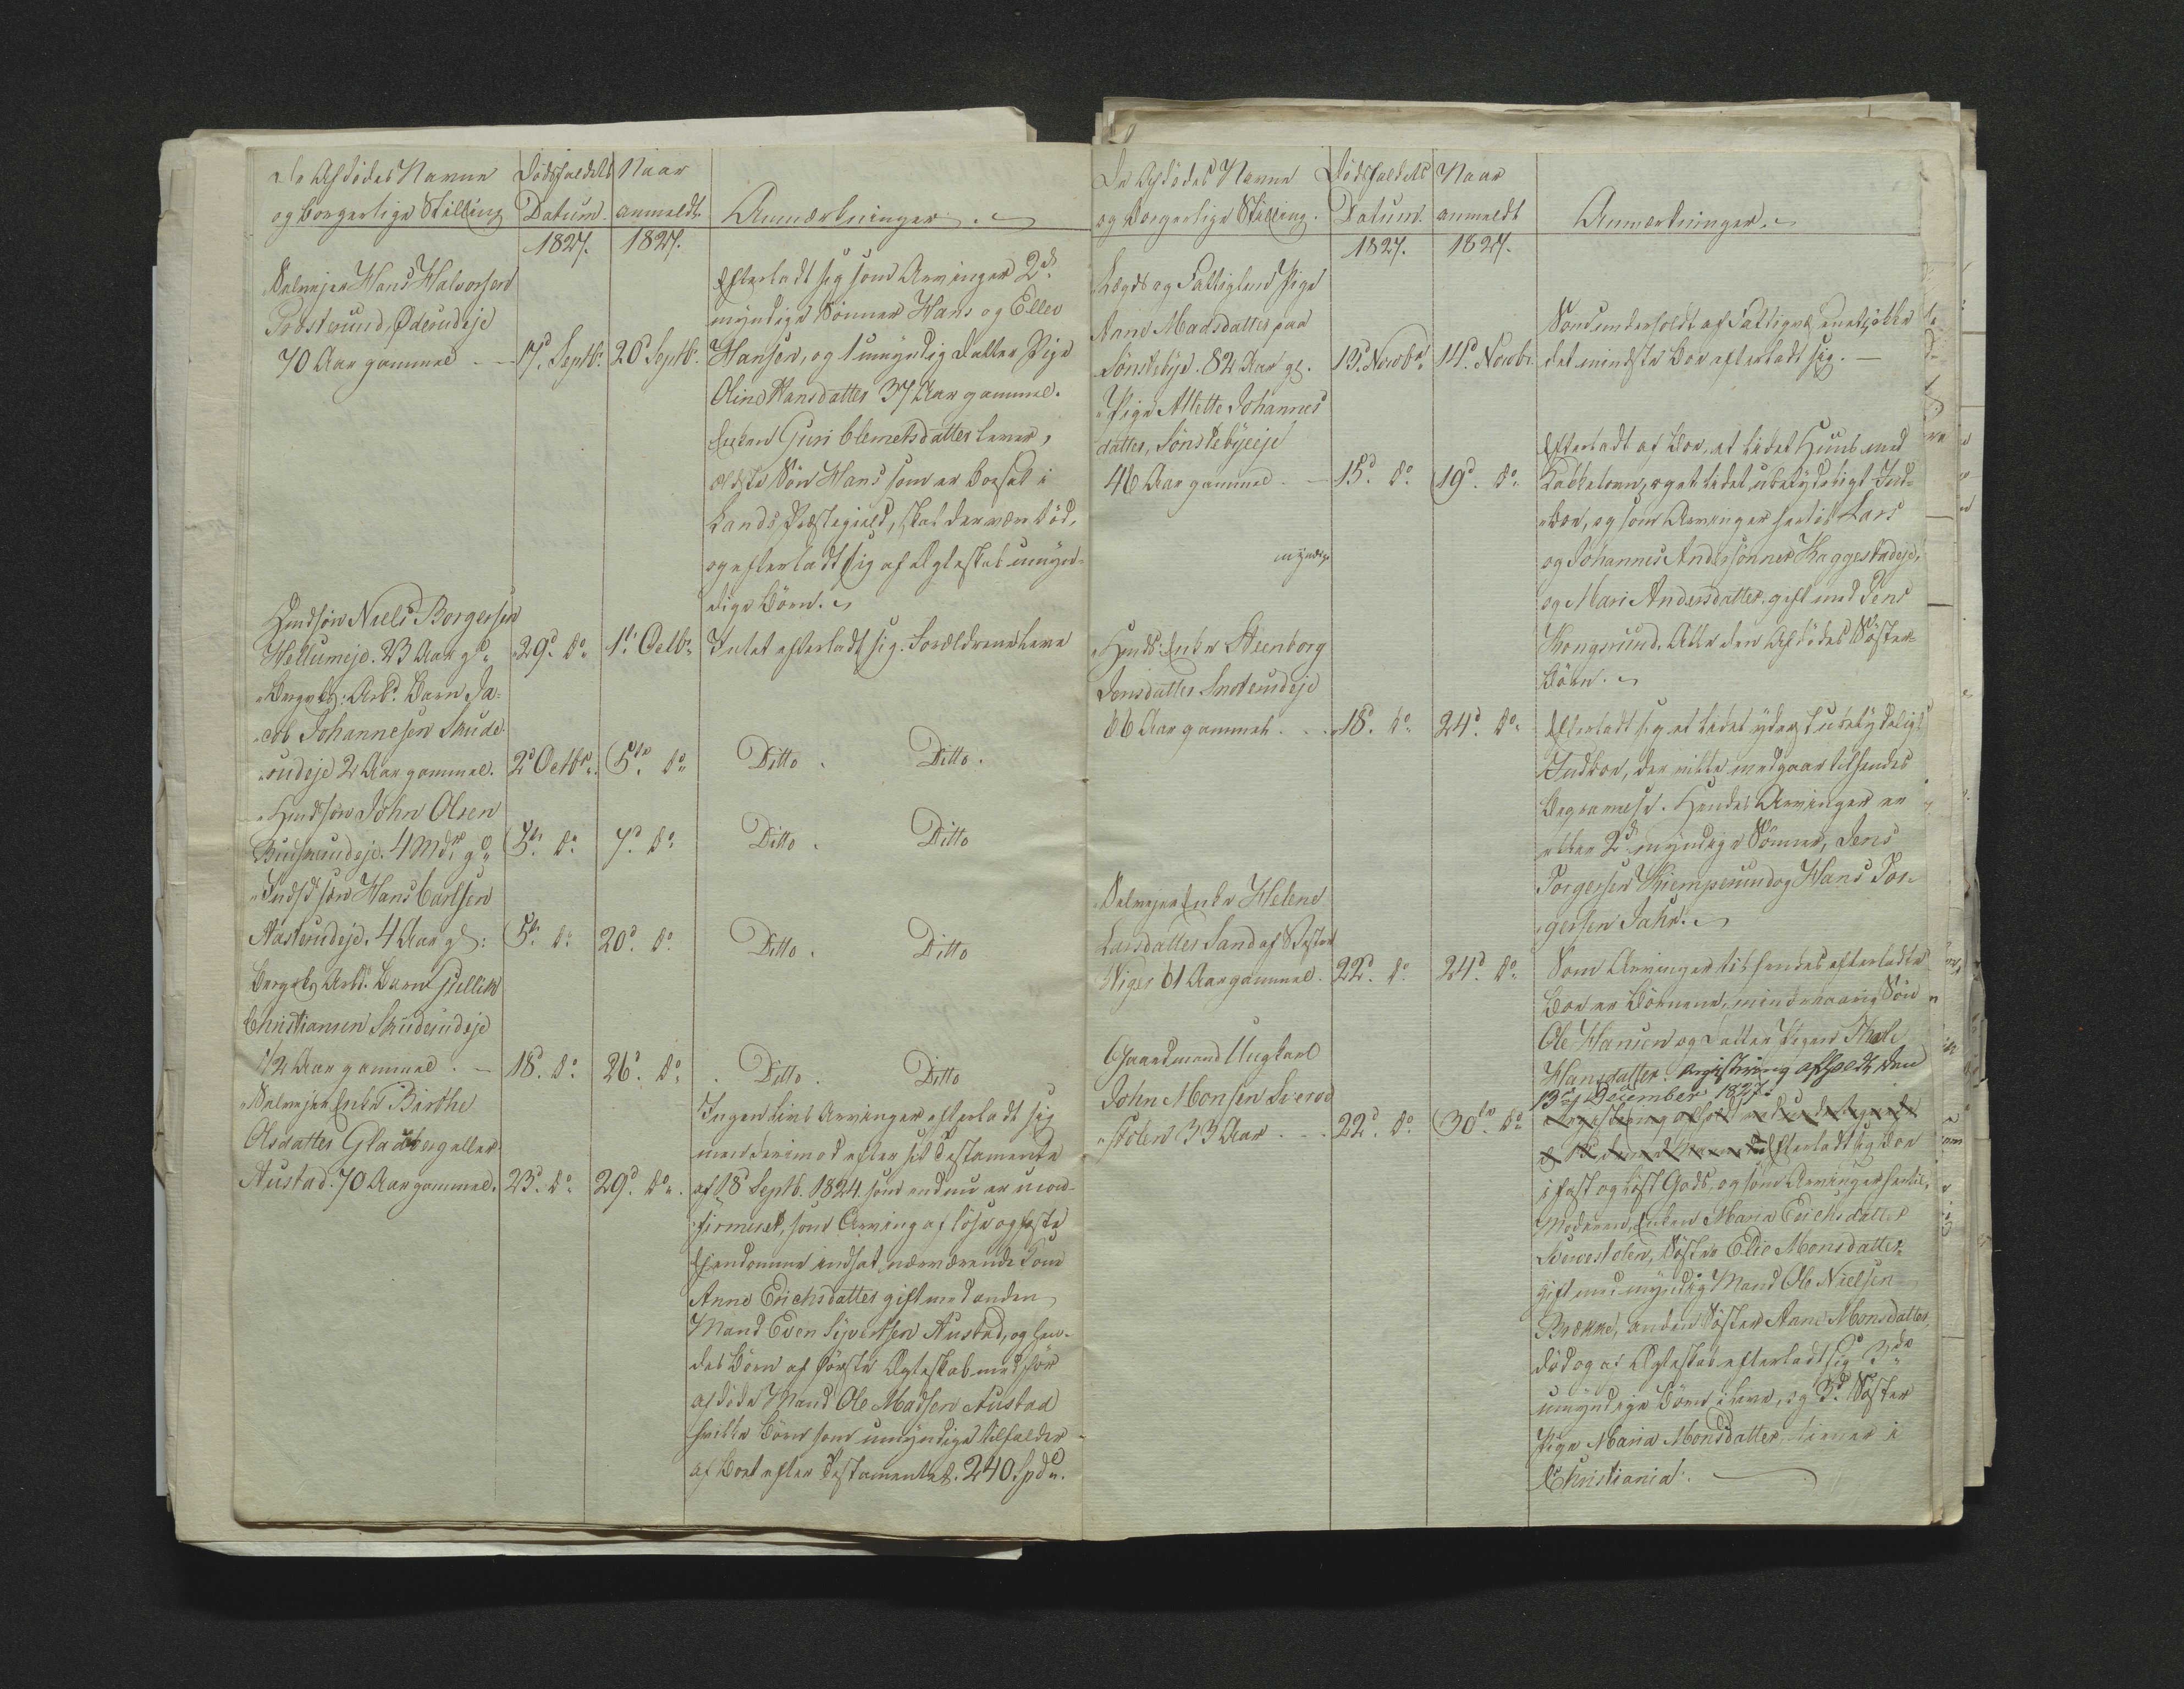 De Afdødes Navne
og borgerlige Stilling
Dødsfaldets
Datum.
Naar
anmeldt
Anmærkninger.
1827. 1827.
Selvejer Hans Halvorsen
Prosterud, Øderudeje
70 Aar gammel
17d Septbr. 26d Septbr.
Efterladt sig som Arvinger 2de
myndige Sønner Hans og Ellev
Hansøn, og 1 umyndig Datter Pige
Oline Hansdatter 37 Aar gammel.
Enken Guri Clemetsdatter lever,
ældste Søn Hans som er bosat i
Lands Præstegield, skal der være død,
og efterladt sig af Ægteskab umyn-
dige Børn.
Huusd. søn Niels Borgersen
Hellumeje. 23 Aar gl.
29d do. 1st Octbr.
Intet efterladt sig. Forældrene leve
Bergv. Arb. Barn Ja-
cob Johannesen Skude-
rudeje 2 Aar gammel.
2d Octbr. 5te do.
Ditto. Ditto.
Huusd. søn John Olsen
4 Mdr. gl.
5te do. 7d do.
Ditto. Ditto
søn Hans Carlsen
Aasterudeje. 4 Aar gl.
5te do. 20d do.
Ditto. Ditto
Bergv. Arb. Barn
Christiansen Skuderudeje
1/2 Aar gammel.
18d do. 26d do.
Ditto. Ditto
Selvejer Enke Birthe
Olsdatter Gladberg eller
Austad. 70 Aar gammel.
23d do. 29d do.
Ingen Livs Arvinger efterladt sig
men derimod efter sit Testamente
af 18d Septb. 1824 som endnu er ucon-
firmeret, som Arving af løse og faste
Ejendomme indsat nærværende Kone
Anne Erichsdatter gift med anden
Mand Even Sjvertsen Austad, og hen-
des Børn af første Ægteskab med før
afdøde Mand Ole Madsen Austad
hvilke Børn som umyndige tilfalder
af Boet efter Testamentet. 240 Spd.
De Afdødes Navne
og borgerlige Stilling.
Dødsfaldets
Datum
Naar
anmeldt
Anmærkninger.
1827. 1827.
Lægds og Fattiglem Pige
Anne Madsdatter paa
Sønstebye. 82 Aar gl.
13d Novbr. 14d Novbr.
Som underholdt af Fattigvæsenet, ikke
det mindste Boe efterladt sig.
Pige Allette Johannes
datter, Sønstebyeeje
46 Aar gammel.
15d do. 19d do.
Efterladt af Boe, et lidet Huus med
Kakkelovn, og et lidet ubetydeligt Ind-
boe, og som Arvinger hertil Lars
myndige
og Johannes Anderssønner Haggestadeje,
og Mari Andersdatter gift med Jens
Kongsrud. Alle den Afdødes Søster-
Børn.
Huusds. Enke Steenborg
Jensdatter
66 Aar gammel.
18d do. 24d do.
Efterladt sig et lidet yderst ubetydeligt
Indboe, der vilde medgaae til hendes
Begravelse. Hendes Arvinger er
2de myndige Sønner, Jens
Torgersen Kiemperud og Hans Tor-
gersen Jahr.
Selvejer Enke Helene
Larsdatter Sand af Vestre
61 Aar gammel.
22d do. 24d do.
Som Arvinger til hendes efterladte
Boe er Børnene, mindreaarig Søn
Ole Hansen og Datter Pigen
Hansdatter. Registrering afholdt den
13de December 1827.
Gaardmand Ungkarl
John Monsen Lverve
stolen 33 Aar
22d do. 30te do.
Efterladt sig Boe
i fast og løst Gods, og som Arvinger hertil,
Moderen, Enken Maria Erichsdatter
Søster Elie Monsdatter
gift med myndig Mand Ole Nielsen
Brække, anden Søster Anne Monsdatter,
død og af Ægteskab efterladt sig 3de
umyndige Børn i live, og 3d. Søster
Pige Maria Monsdatter, tiener i
Christiania.